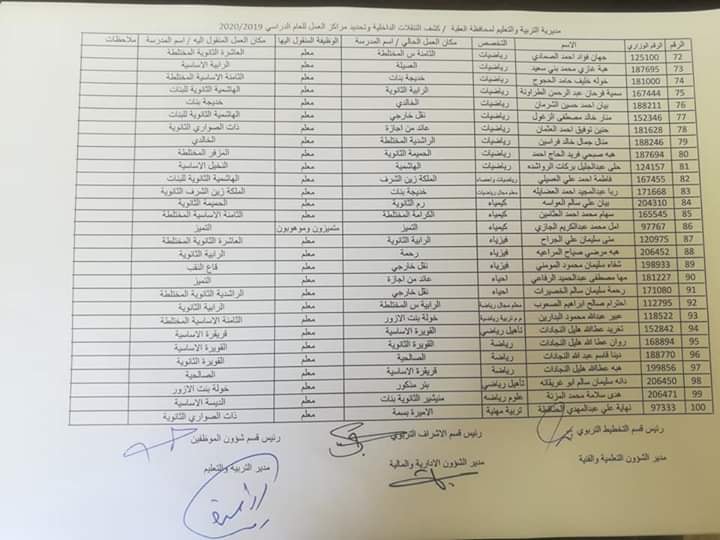 مديرية التربية والتعليم لمحافظة العقبة / كشف التنقلات الداخلية وتحديد مراكز العمل للعام الدراسي 2020/2019
الرقم الرقم الوزاري الاسم التخصص مكان العمل الحالي / اسم المدرسة الوظيفة المنقول اليها مكان العمل المنقول اليه / اسم المدرسة ملاحظات
72 125100 جهان فؤاد احمد الصمادي رياضيات الثامنة س المختلطة معلم العاشرة الثانوية المختلطة
73 187695 هبة غازي محمد بني سعيد رياضيات الاصيلة معلم الرابية الاساسية
74 181000 خوله خليف حامد الحجوج رياضيات خديجة بنات معلم الثامنة الاساسية المختلطة
75 167444 سمية فرحان عبد الرحمن الطراونة رياضيات الرابية الثانوية معلم الهاشمية الثانوية للبنات
76 188211 بيان احمد حسين الشرمان رياضيات الخالدي معلم خديجة بنات
77 152346 منار خالد مصطفى الزغول رياضيات نقل خارجي معلم الهاشمية الثانوية للبنات
78 181628 حنين توفيق احمد العثمان رياضيات عائد من اجازة معلم ذات الصواري الثانوية
79 188246 منال جمال خالد فراسين رياضيات الراشدية المختلطة معلم الخالدي
80 187694 هبه صبحي فريد الحاج احمد رياضيات الحميمة الثانوية معلم المزفر المختلطة
81 124157 حلى عبدالجليل بركات الرواشده رياضيات الهاشمية معلم النخيل الاساسية
82 167455 فاطمة احمد علي العسيلي رياضيات واحصاء الملكة زين الشرف معلم الهاشمية الثانوية للبنات
83 171668 ربا عبدالمجيد احمد العضايله معلم مجال رياضيات خديجة بنات معلم الملكة زين الشرف الثانوية
84 204310 بيان علي سالم العواسه كيمياء رم الثانوية معلم الحميمة الثانوية
85 165545 سهام محمد احمد العثامين كيمياء الكرامة المختلطة معلم الثامنة الاساسية المختلطة
86 97767 امل محمد عبدالكريم الجازي كيمياء التميز متميزون وموهوبون التميز
87 120975 منى سليمان علي الجراح فيزياء الرابية الثانوية معلم العاشرة الثانوية المختلطة
88 206452 هبه مرضي صياح المراعيه فيزياء رحمة معلم الرابية الثانوية
89 198933 شفاء سليمان محمود المومني فيزياء نقل خارجي معلم قاع النقب
90 181227 مها مصطفى عبدالحميد الرفاعي احياء عائد من اجازة معلم التميز
91 171080 رحمة سليمان سالم الخصيرات احياء نقل خارجي معلم الراشدية الثانوية المختلطة
92 112795 احترام صالح ابراهيم الصعوب معلم مجال رياضة الرابية س المختلطة معلم الرابية الثانوية
93 118522 عبير عبدالله محمود البدارين م م تربية رياضية خولة بنت الازور معلم الثامنة الاساسية المختلطة
94 152842 تغريد عطالله هليل النجادات تأهيل رياضي القويرة الاساسية معلم قريقرة الاساسية
95 168894 روان عطا الله هليل النجادات رياضة القويرة الثانوية معلم القويرة الاساسية
96 188770 دينا قاسم عبد الله النجادات رياضة الصالحية معلم القويرة الثانوية
97 199856 هبه عطاالله هليل النجادات رياضة قريقرة الاساسية معلم الصالحية
98 206450 دانه سليمان سالم ابو عريقانه تأهيل رياضي بئر مذكور معلم خولة بنت الازور
99 206471 هدى سلامة محمد المزنة علوم رياضه منيشير الثانوية بنات معلم الديسة الاساسية
100 97333 نهاية علي عبدالمهدي الحنافطة تربية مهنية الاميرة بسمة معلم ذات الصواري الثانوية
رئيس قسم التخطيط التربوي رئيس قسم الاشراف التربوي رئيس قسم شؤون الموظفين
مدير الشؤون التعلمية والفنية مدير الشؤون الادارية والمالية مدير التربية والتعليم